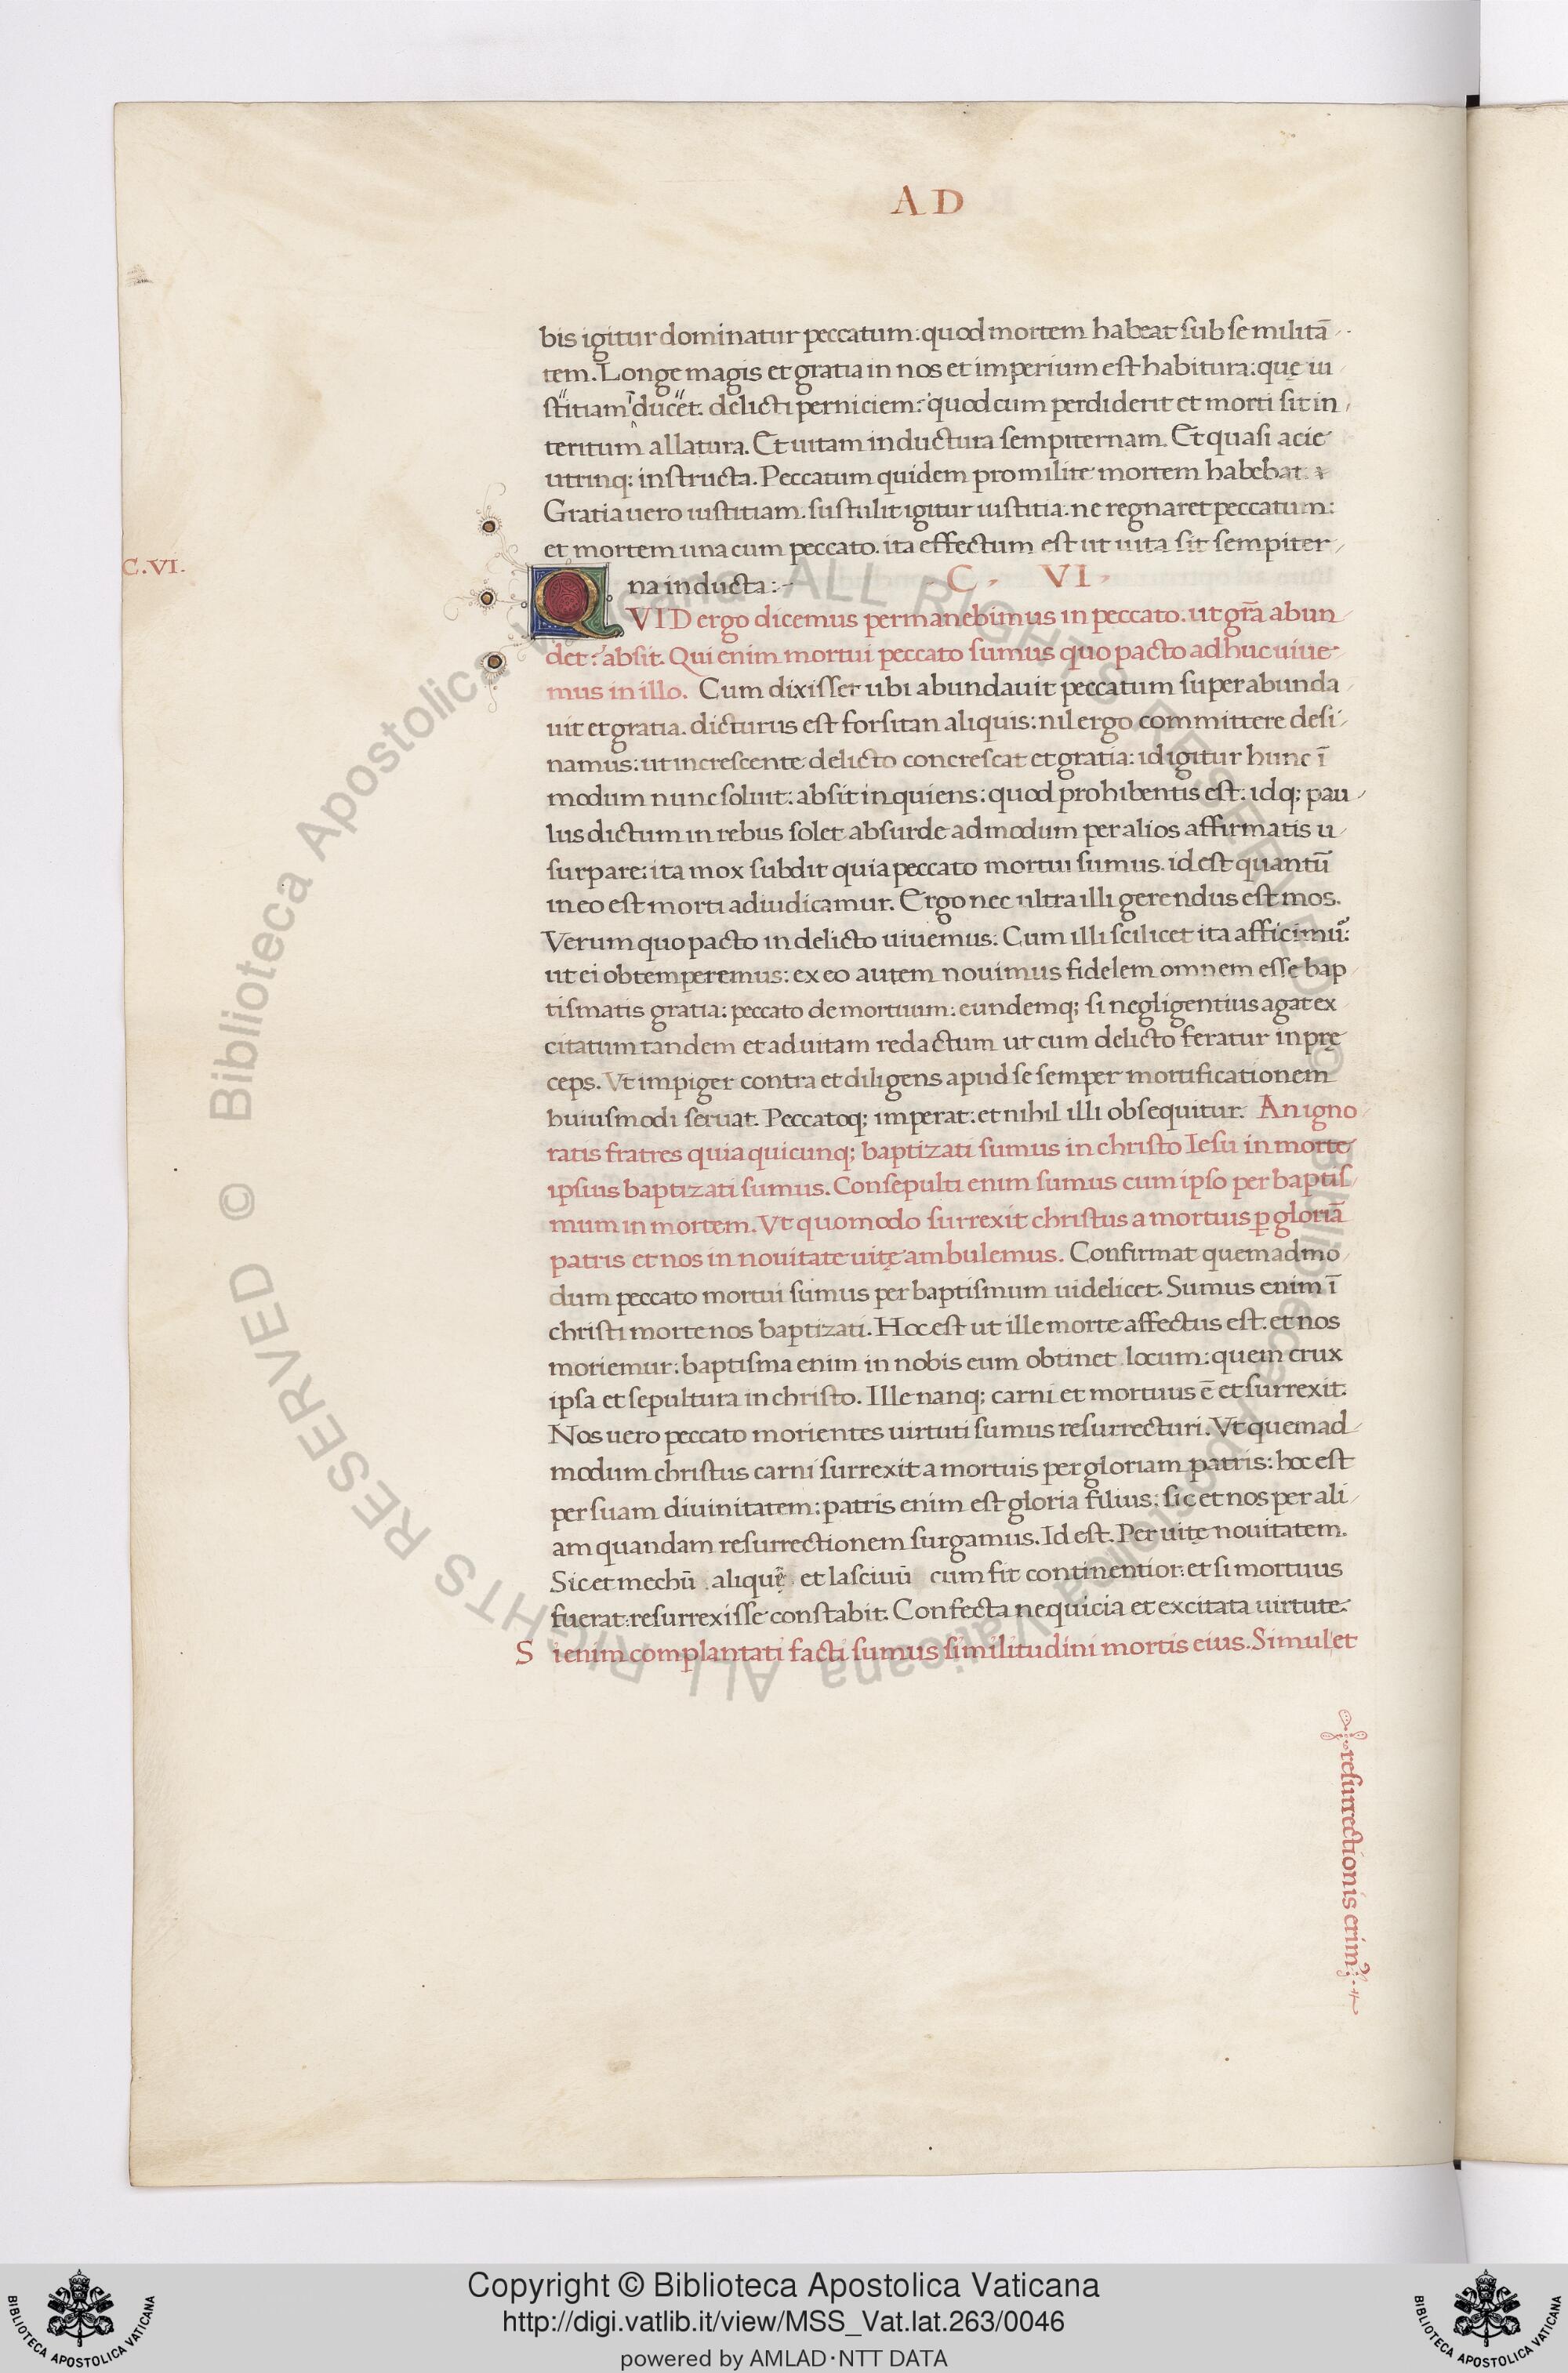 AD
bis igitur dominatur peccatum: quod mortem habeat sub se militā
tem. Longe magis et gratia in nos et imperium est habitura: quę iu
stitiam īducet. delicti perniciem: quod cum perdiderit et morti sit in
teritum allatura. Et uitam inductura sempiternam. Et quasi acie
utrinq: instructa. Peccatum quidem pro milite mortem habebat.
Gratia uero iustitiam. sustulit igitur iustitia. ne regnaret peccatum:
et mortem una cum peccato. ita effectum est ut uita sit sempiter
C.VI.
na inducta:- C. VI
QVID ergo dicemus permanebimus in peccato. ut gr̄a abun
det: absit. Qui enim mortui peccato sumus quo pacto adhuc uiue
mus in illo. Cum dixisset ubi abundauit peccatum superabunda
uit et gratia. dicturus est forsitan aliquis: nil ergo committere desi
namus: ut increscente delicto concrescat et gratia: id igitur hunc ī
modum nunc soluit: absit inquiens: quod prohibentis est: idq; pau
lus dictum in rebus solet absurde admodum per alios affirmatis u
surpare: ita mox subdit quia peccato mortui sumus. id est quantū
in eo est morti adiudicamur. Ergo nec ultra illi gerendus est mos.
Verum quo pacto in delicto uiuemus: Cum illi scilicet ita afficimur:
ut ei obtemperemus: ex eo autem nouimus fidelem omnem esse bap
tismatis gratia: peccato demortuum: eundemq; si negligentius agat ex
citatum tandem et ad uitam redactum ut cum delicto feratur in prę
ceps. Vt impiger contra et diligens apud se semper mortificationem
huiusmodi seruat. Peccatoq; imperat: et nihil illi obsequitur. An igno
ratis fratres quia quicunq; baptizati sumus in christo Iesu in morte
ipsius baptizati sumus. Consepulti enim sumus cum ipso per baptis
mum in mortem. Vt quomodo surrexit christus a mortuis ꝑ gloriā
patris et nos in nouitate uitę ambulemus. Confirmat quemadmo
dum peccato mortui sumus per baptismum uidelicet. Sumus enim ī
christi morte nos baptizati. Hoc est ut ille morte affectus est. et nos
moriemur: baptisma enim in nobis eum obtinet locum: quem crux
ipsa et sepultura in christo. Ille nanq; carni et mortuus ē et surrexit.
Nos uero peccato morientes uirtuti sumus resurrecturi. Vt quemad
modum christus carni surrexit a mortuis per gloriam patris: hoc est
per suam diuinitatem: patris enim est gloria filius: sic et nos per ali
am quandam resurrectionem surgamus. Id est. Per uitę nouitatem.
Sic et mechū aliquē et lasciuū cum fit continentior: et si mortuus
fuerat: resurrexisse constabit. Confecta nequicia et excitata uirtute.
S ienim complantati facti sumus similitudini mortis eius. Simul et
resurrectionis erim⁹
© Biblioteca Apostolica Vaticana ALL RIGHTS RESERVED © Biblioteca Apostolica Vaticana ALL RIGHTS RESERVED
Copyright © Biblioteca Apostolica Vaticana
http://digi.vatlib.it/view/MSS_Vat.lat.263/0046
powered by AMLAD·NTT DATA
BIBLIOTECA APOSTOLICA VATICANA
BIBLIOTECA APOSTOLICA VATICANA